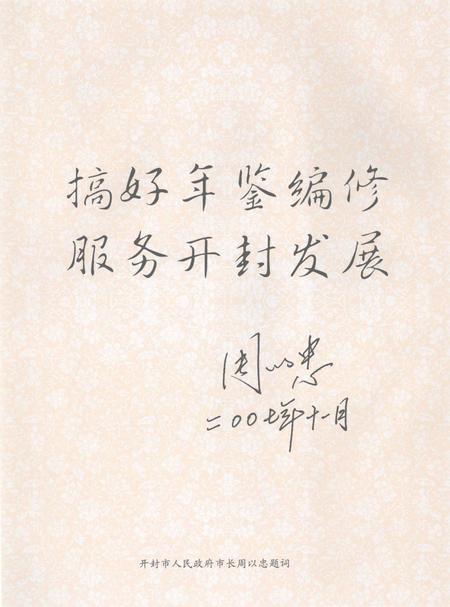 搞好年鉴编修
服务开封发展
周以忠
二〇〇七年十一月
开封市人民政府市长周以忠题词